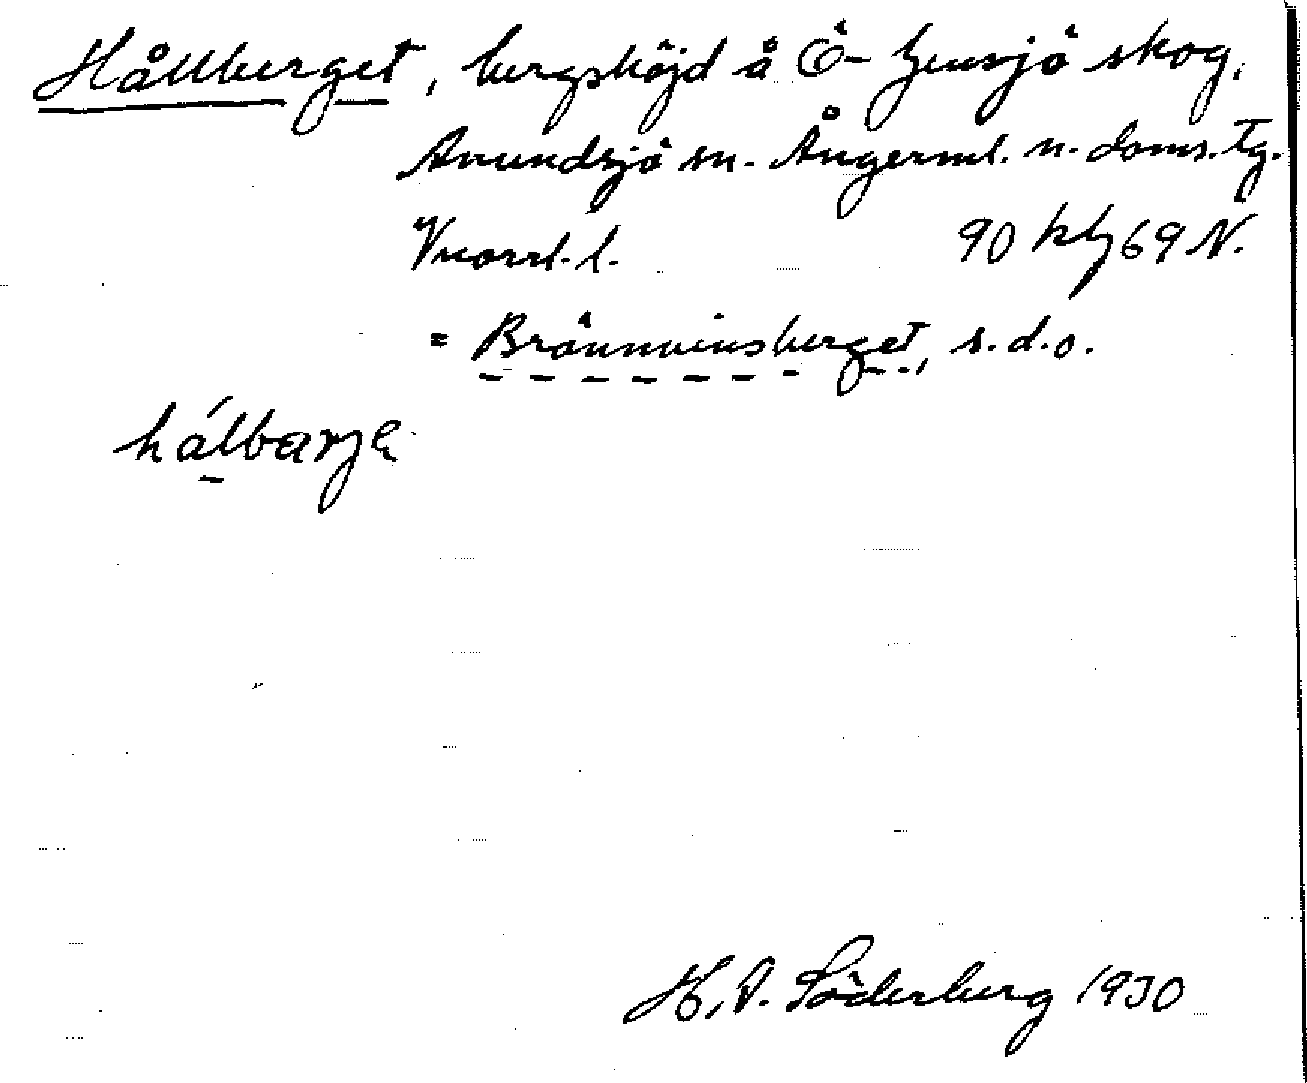 Hållberget, bergshöjd å Ö- Gensjö skog,
Anundsjö sn. Ångerml. n. doms. tg.
Vnorrl. l. 90 kbj 69 N.
= Brännvinsberget, s.d.o.
hálbarje
H. A. Söderberg 1930